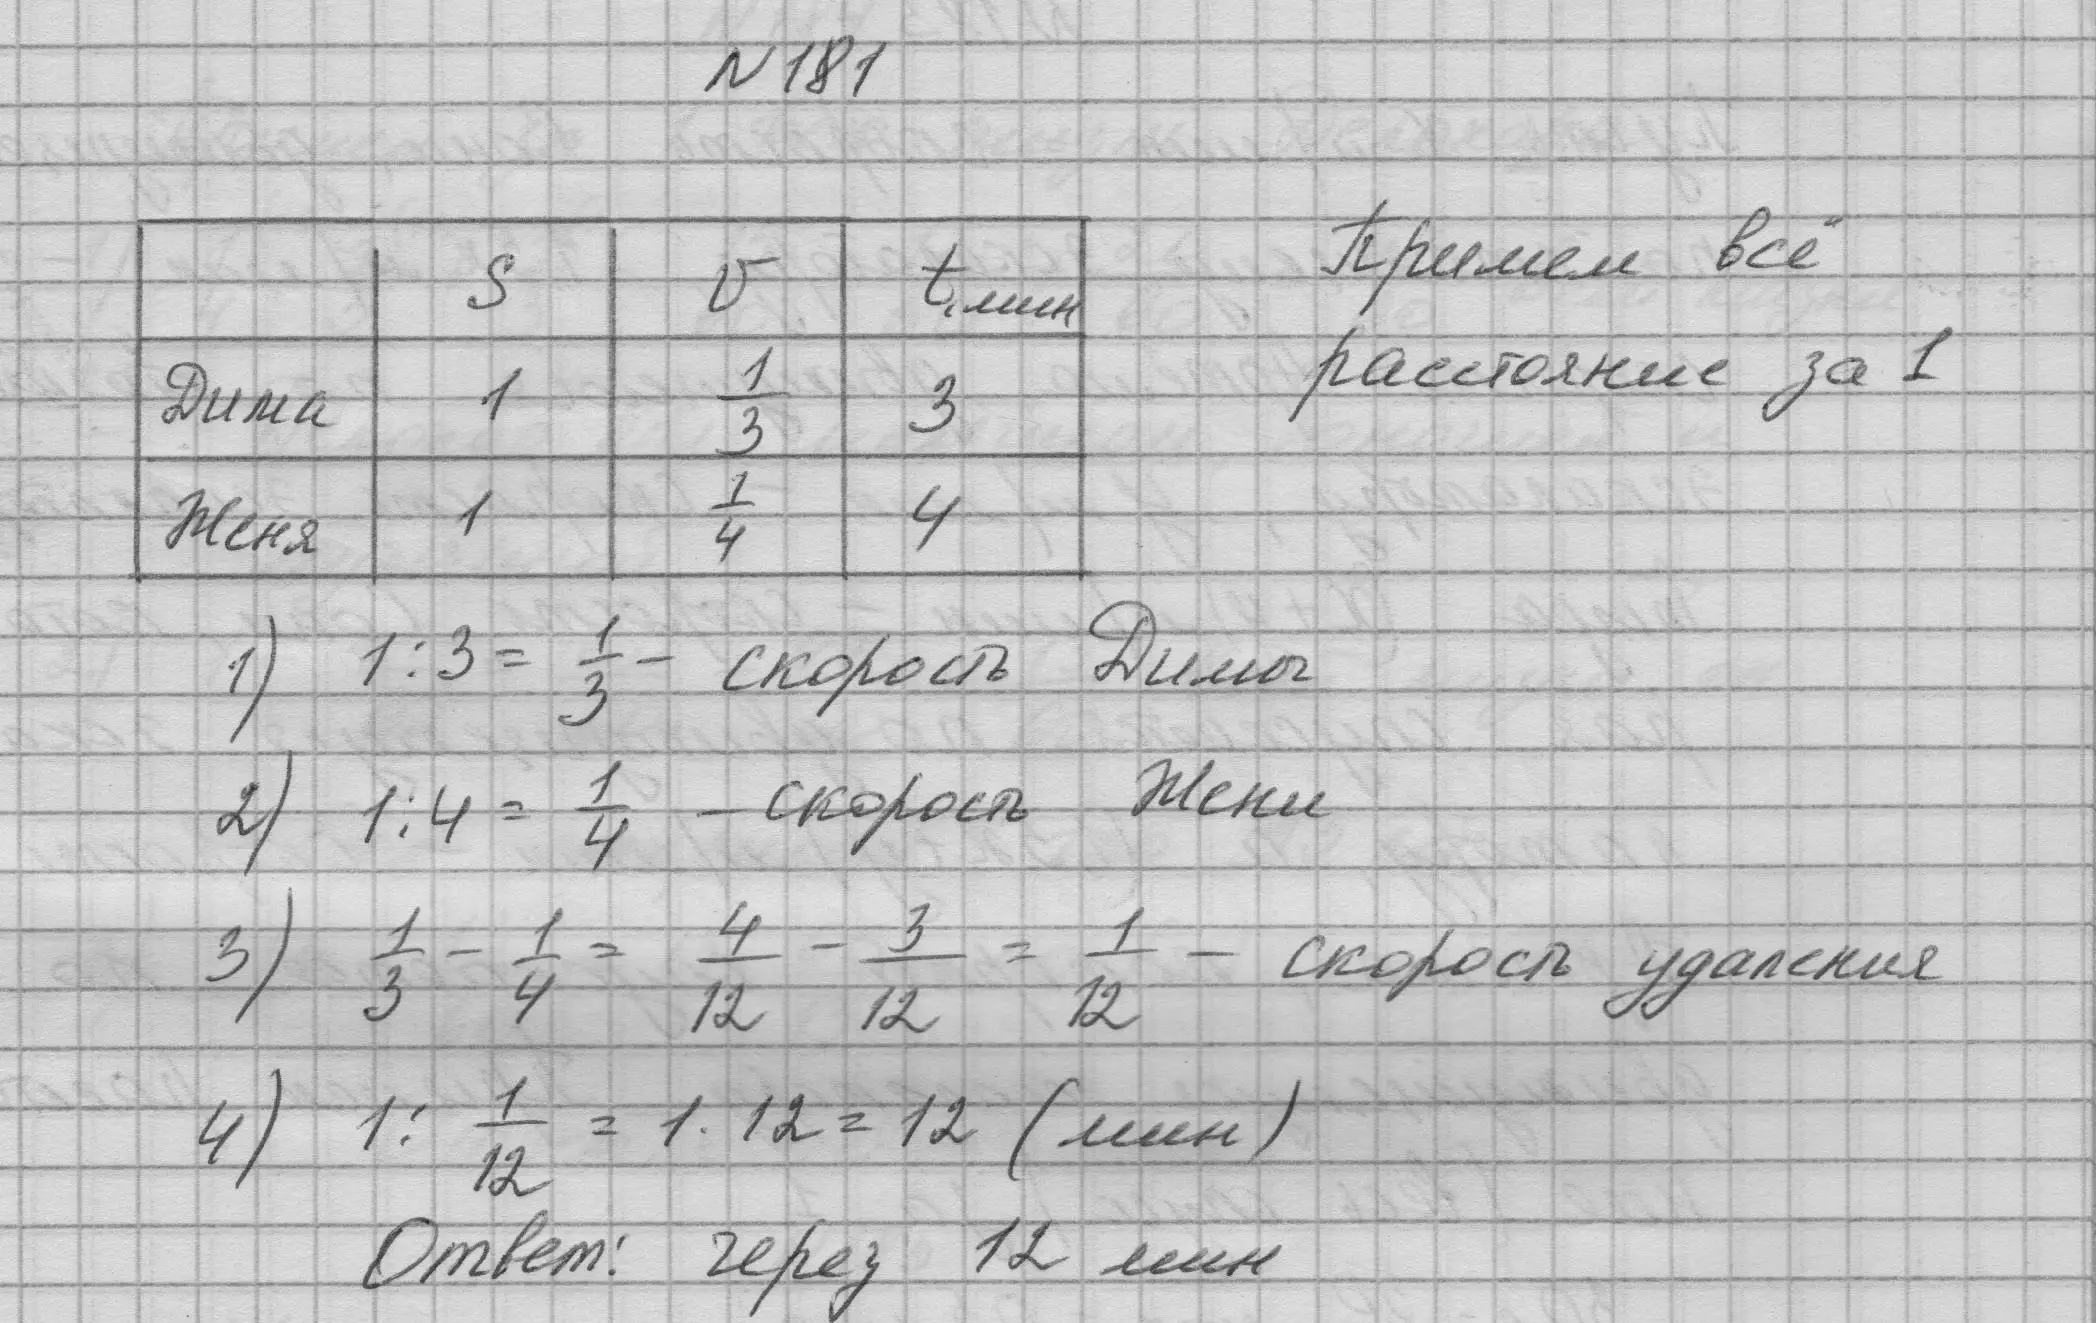 N 181
Примем всё
расстояние за 1
S v t, мин
Дима 1 1/3 3
Женя 1 1/4 4
1) 1:3 = 1/3 - скорость Димы
2) 1:4 = 1/4 - скорость Жени
3) 1/3 - 1/4 = 4/12 - 3/12 = 1/12 - скорость удаления
4) 1: 1/12 = 1 · 12 = 12 (мин)
Ответ: через 12 мин